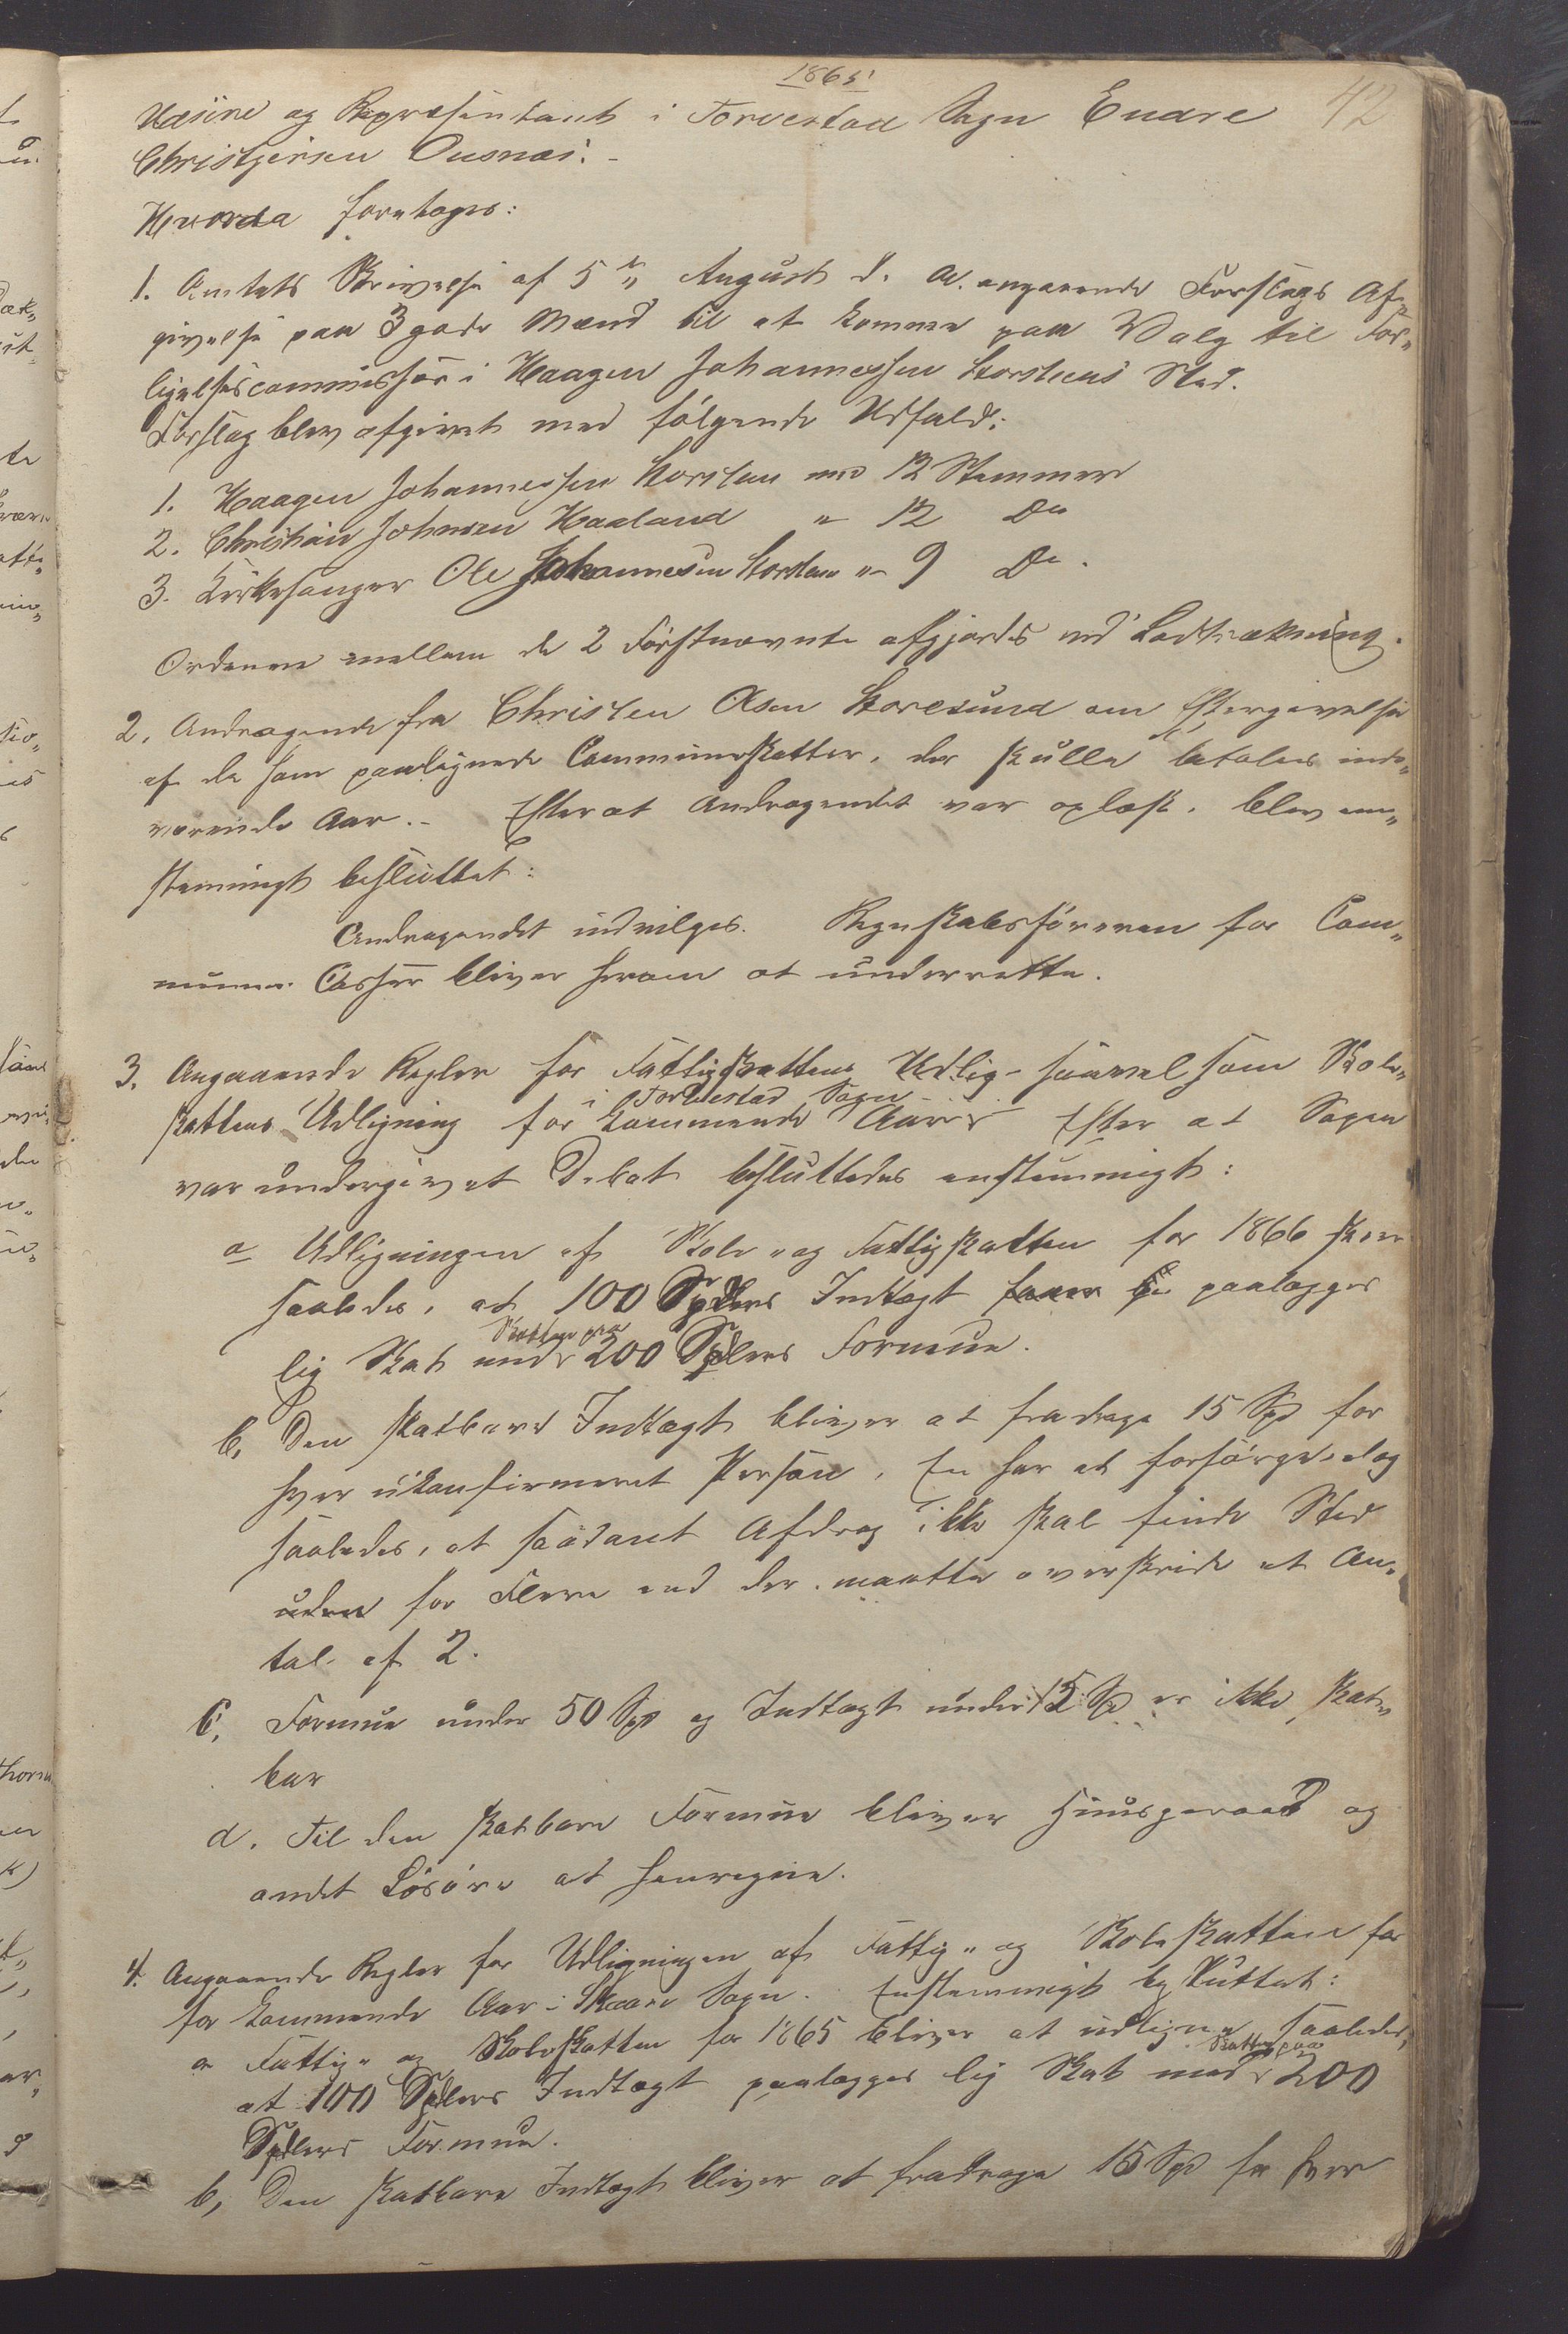 1865
42
og Repræsentant i Torvestad Sogn Endre
Christjernsen Ousnæs.-
Hvorda foretoges:
1. Amtets Skrivelse af 5te August d. A. angaaende Forslags Af„
givelse paa 3 gode Mænd til at komme paa Valg til For„
ligelsescommissær i Haagen Johannessen Storsteens Sted.
Forslag blev afgivet med følgende Udfald:
1. Haagen Johannessen Storsteen med 12 Stemmer
2. Christian Johnsen Haaland " 12 Do
3. Kirkesanger Ole Johannesen Storsteen " 9 Do.
Ordenen mellem de 2 Førstnævnte afgjordes ved Lodtrækning.
2. Andragende fra Christen Olsen Storesund om Eftergivelse
af de ham paalignede Communeskatter, der skulle betales inde„
værende Aar.- Efterat Andragendet var oplæst, blev een„
stemmigt besluttet:
Andragendet indvilges. Regnskabsføreren for Com„
munens Casser bliver herom at underrette.
3. Angaaende Regler for Fattigskattens Udlig- saavelsom Skole„
i Torvestad Sogn
skattens Udligning for kommende Aar. Efter at Sagen
var undergivet Debat besluttedes enstemmigt:
a Udligningen af Skole „ og Fattigskatten for 1866 skeer
saaledes, at 100 Spdlers Indtægt paalægges
Skatten paa
lig Skat med 200 Spdlers Formue.
b, Den skatbare Indtægt bliver at fradrage 15 Spd for
hver ukonfirmeret Person, En har at forsørge, dog
saaledes, at saadant Afdrag ikke skal finde Sted
uden for Flere end der maatte overskride et An„
tal af 2.
C, Formue under 50 Spd og Indtægt under 15 Spd er ikke skat„
bar
d. Til den skatbare Formue bliver Huusgeraad og
andet Løsøre at henregne.
4. Angaaende Regler for Udligningen af Fattig „ og Skoleskatten for
for kommende Aar i Skaare Sogn. Enstemmigt besluttet:
a Fattig „ og Skoleskatten for 1865 bliver at udligne saaledes,
Skatten paa
at 100 Spdlers Indtægt paalægges lig Skat med 200
Spdlers Formue.
b, Den skatbare Indtægt bliver at fradrage 15 Spd for hver